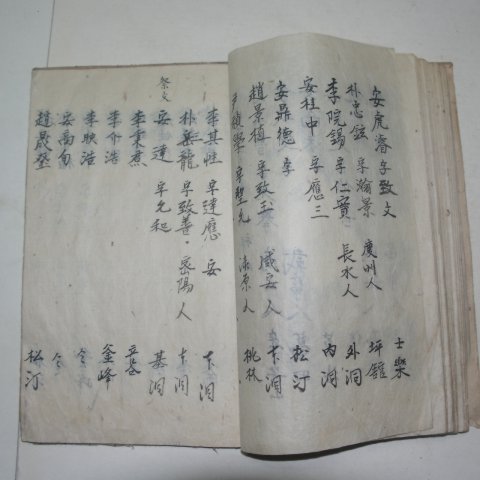 安虎濬 字致文 士樂
朴忠鉉 字瀚景 慶州人 坪館
李院錫 字仁實 長水人 外洞
安桂中 字應三 內洞
安鼎德 字 松汀
趙景植 字致玉 咸安人 下洞
字聖允 漆原人 桃林
李其性 字達應 安 下洞
朴龍 字致善 密陽人 下洞
祭文
安達 字允和 基洞
李秉煮 立岩
李介浩 釜峰
李映浩 仝
安禹旬 仝
趙晟 松汀